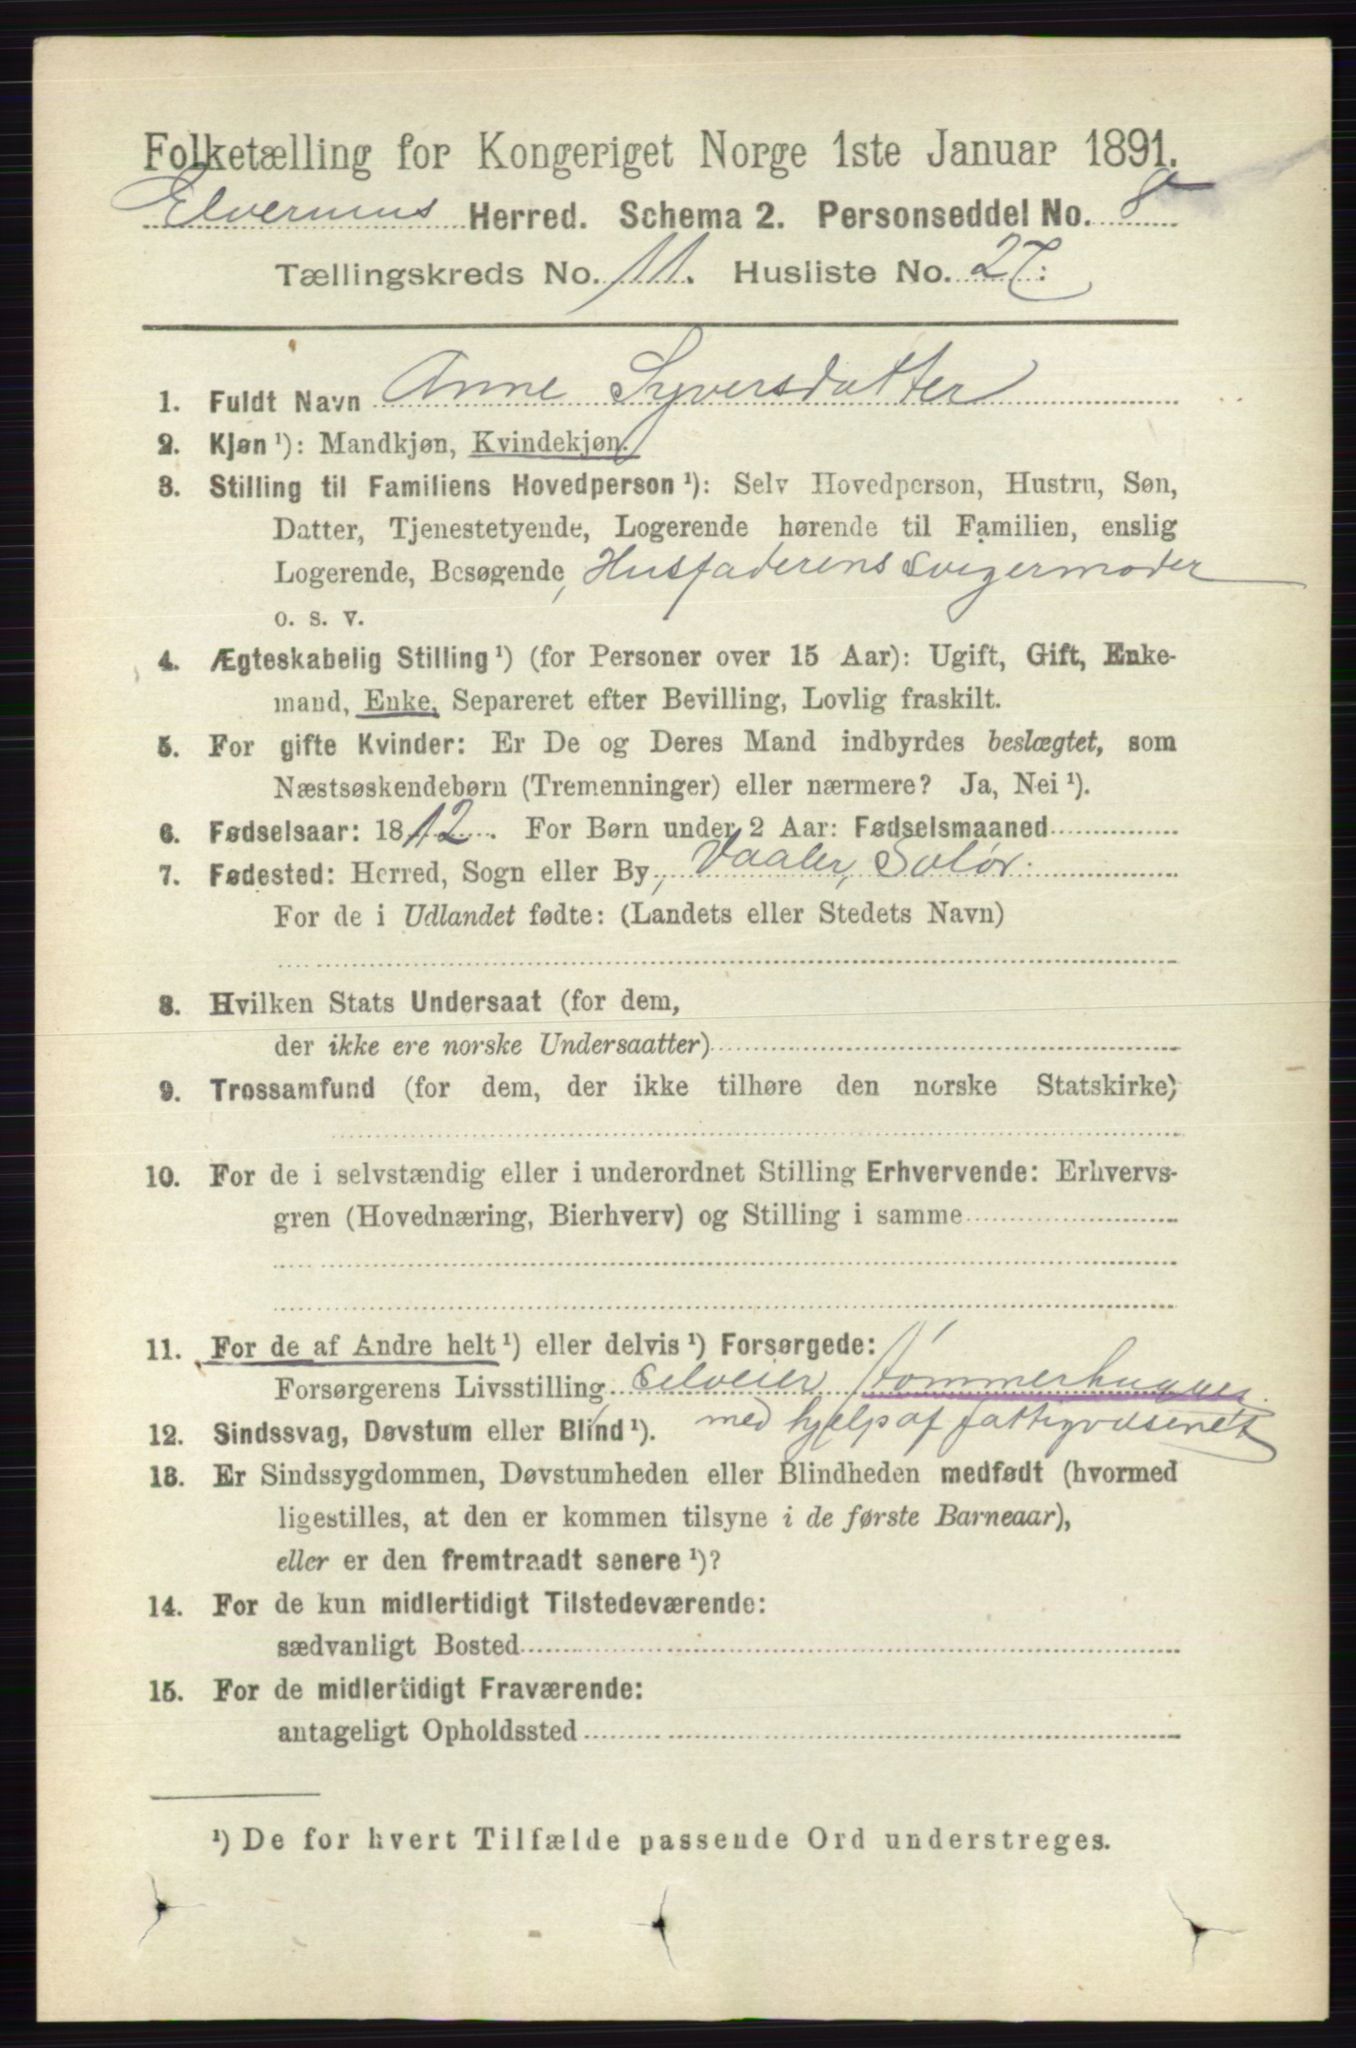 Folketælling for Kongeriget Norge 1ste Januar 1891.
Elverums Herred. Schema 2. Personseddel No. 8
Tællingskreds No. 11. Husliste No. 27.
1. Fuldt Navn Anne Syversdatter
2. Kjøn ¹): Mandkjøn, Kvindekjøn.
3. Stilling til Familiens Hovedperson ¹): Selv Hovedperson, Hustru, Søn,
Datter, Tjenestetyende, Logerende hørende til Familien, enslig
Logerende, Besøgende, Husfaderens Svigermoder
o. s. v.
4. Ægteskabelig Stilling ¹) (for Personer over 15 Aar): Ugift, Gift, Enke-
mand, Enke, Separeret efter Bevilling, Lovlig fraskilt.
5. For gifte Kvinder: Er De og Deres Mand indbyrdes beslægtet, som
Næstsøskendebørn (Tremenninger) eller nærmere? Ja, Nei ¹).
6. Fødselsaar: 1812. For Børn under 2 Aar: Fødselsmaaned
7. Fødested: Herred, Sogn eller By, Vaaler, Solør.
For de i Udlandet fødte: (Landets eller Stedets Navn)
8. Hvilken Stats Undersaat (for dem,
der ikke ere norske Undersaatter)
9. Trossamfund (for dem, der ikke tilhøre den norske Statskirke)
10. For de i selvstændig eller i underordnet Stilling Erhvervende: Erhvervs-
gren (Hovednæring, Bierhverv) og Stilling i samme
11. For de af Andre helt ¹) eller delvis ¹) Forsørgede:
Forsørgerens Livsstilling, Selveier Tømmerhugger
med hjelp af fattigvæsenet
12. Sindssvag, Døvstum eller Blind ¹).
13. Er Sindssygdommen, Døvstumheden eller Blindheden medfødt (hvormed
ligestilles, at den er kommen tilsyne i de første Barneaar),
eller er den fremtraadt senere ¹)?
14. For de kun midlertidigt Tilstedeværende:
sædvanligt Bosted
15. For de midlertidigt Fraværende:
antageligt Opholdssted
¹) De for hvert Tilfælde passende Ord understreges.